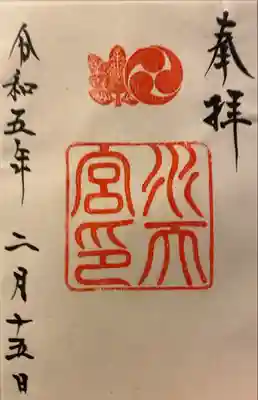 奉拝
水天宮印
令和五年 二月十五日